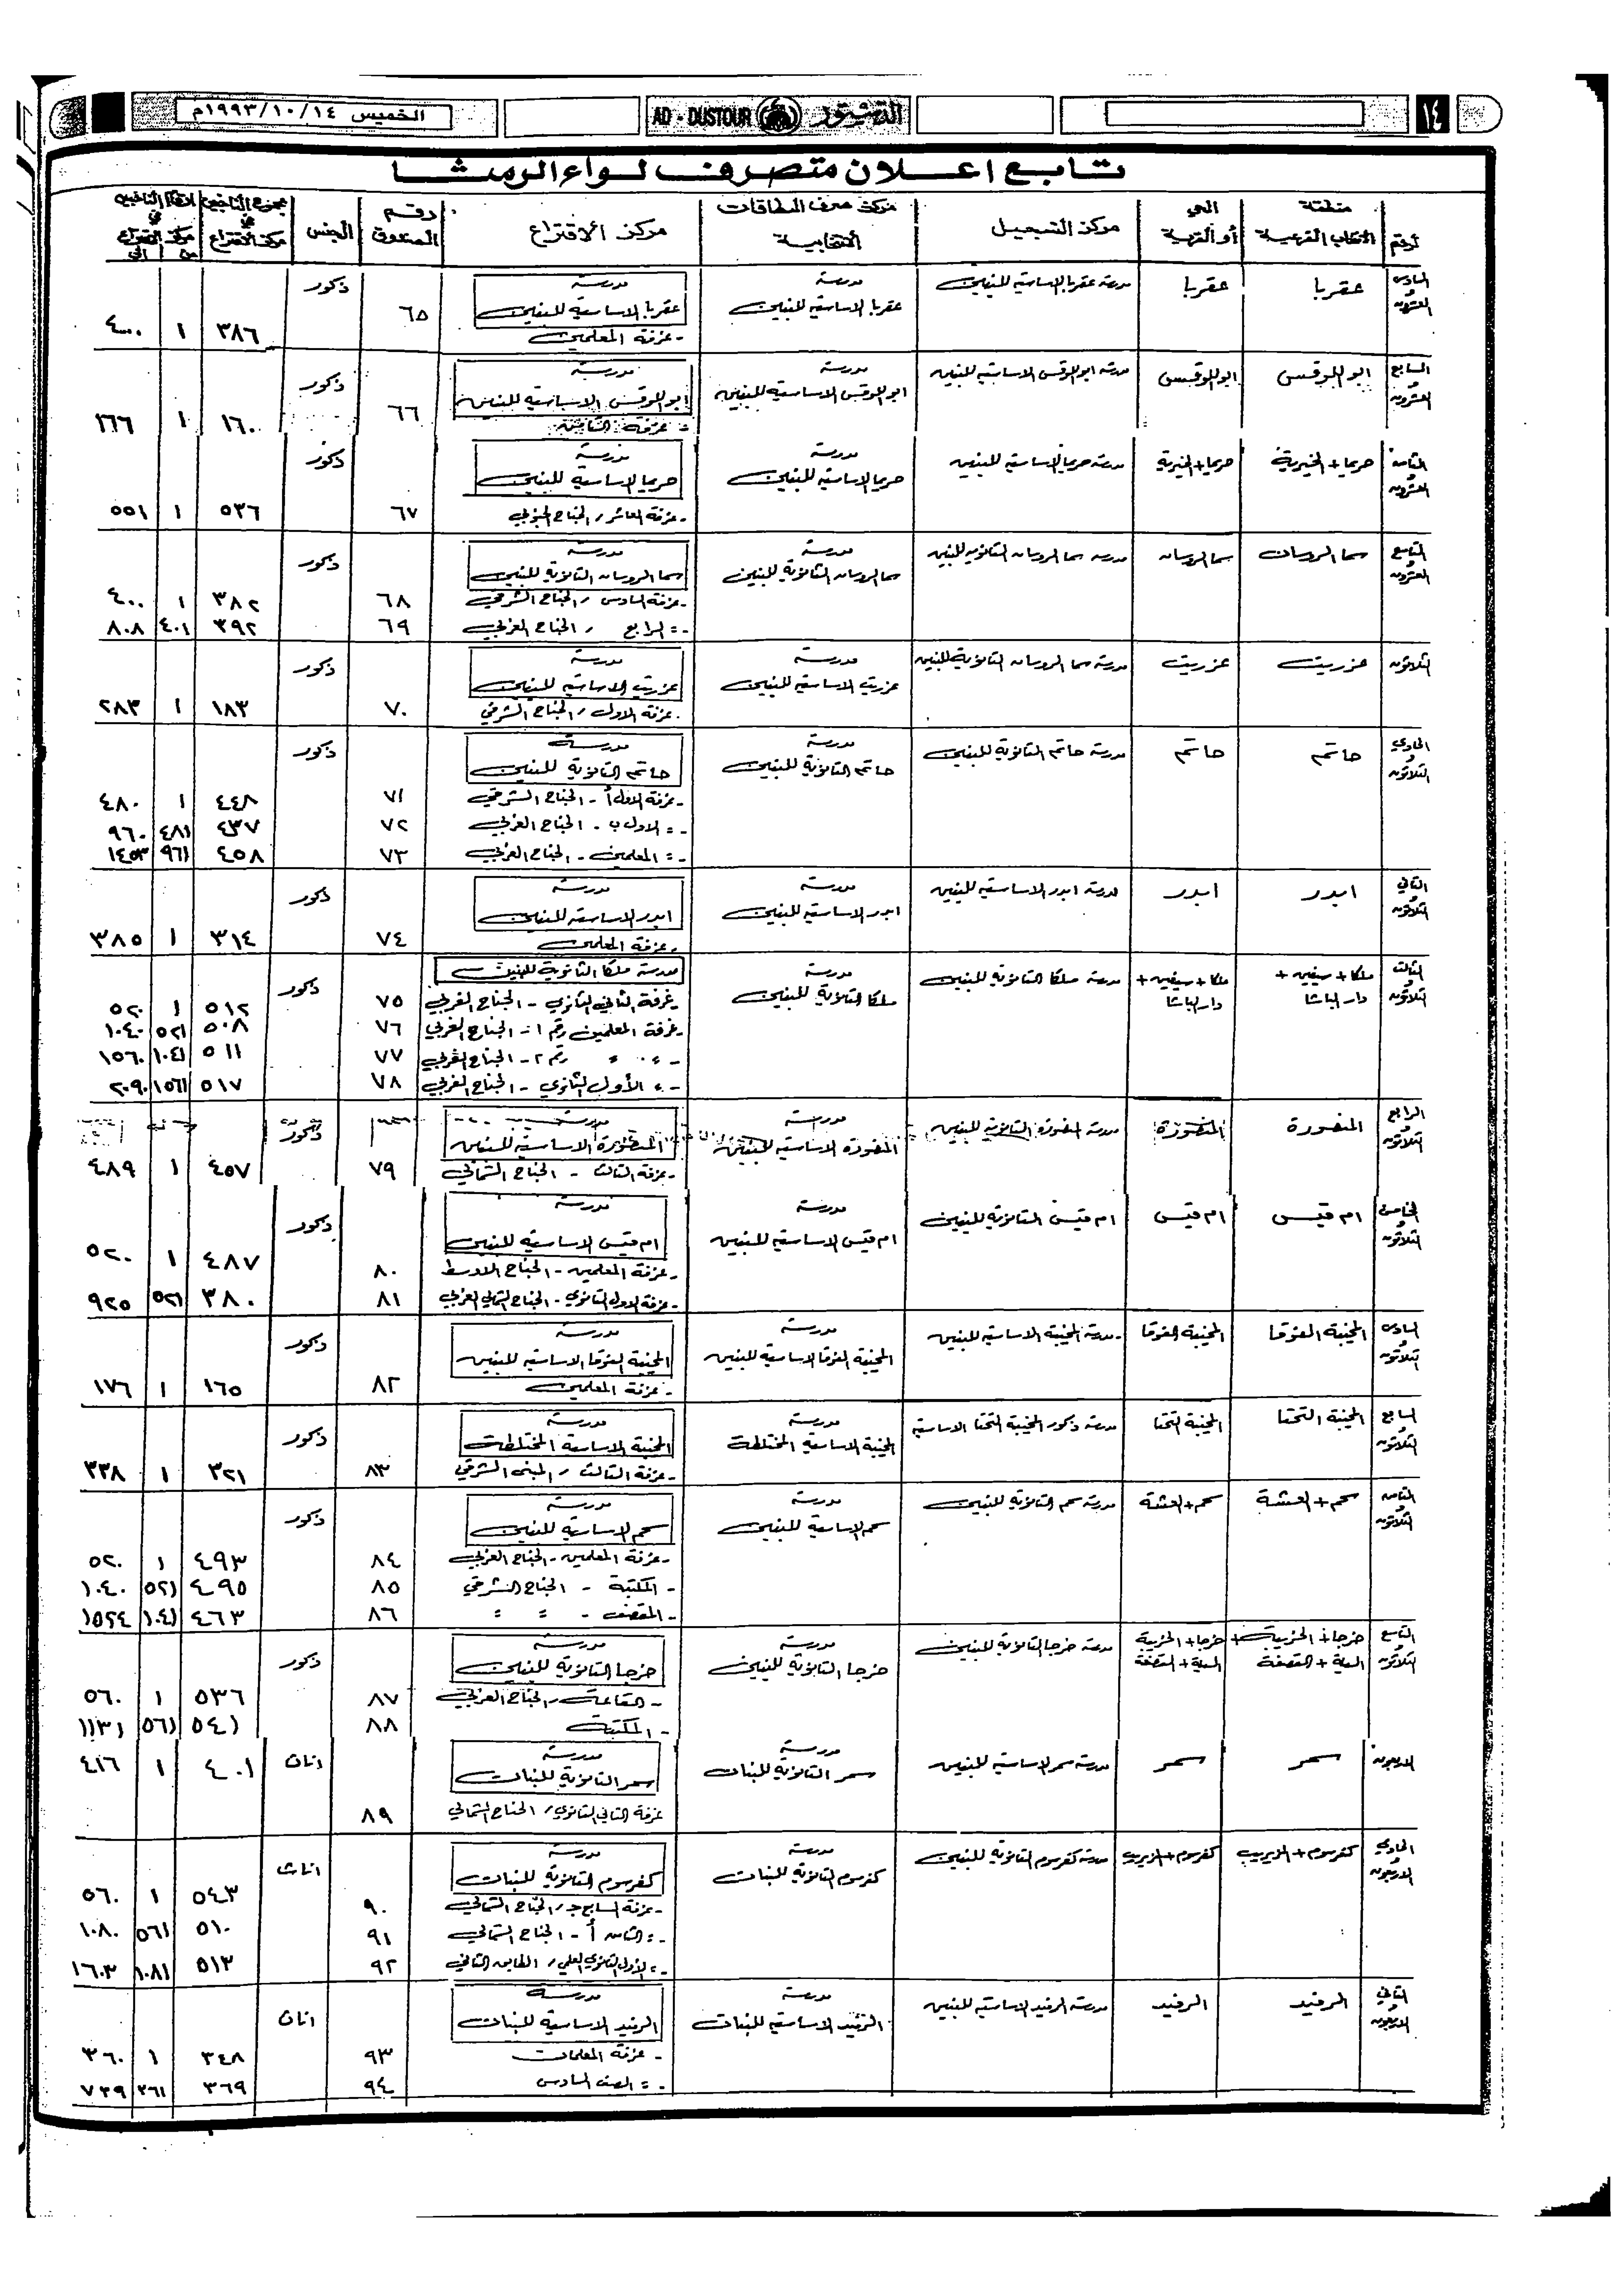 ١٤
الدستور AD - DUSTOUR
الخميس ١٤/١٠/١٩٩٣م
تابع اعلان متصرف لواء الرمثا
الرقم | منطقة الانتخاب الفرعية | الحي أو القرية | مركز التسجيل | مركز صرف البطاقات الانتخابية | مركز الاقتراع | رقم الصندوق | الجنس | مجموع الناخبين في مركز الاقتراع | ارقام الناخبين في مركز الاقتراع من | الى
السادس والعشرون | عقربا | عقربا | مدرسة عقربا الاساسية للبنين | مدرسة عقربا الاساسية للبنين | مدرسة عقربا الاساسية للبنين | ذكور
- غرفة المعلمين | ٦٥ | ٣٨٦ | ١ | ٤٠٠
السابع والعشرون | ابو اللوقس | ابو اللوقس | مدرسة ابو اللوقس الاساسية للبنين | مدرسة ابو اللوقس الاساسية للبنين | مدرسة ابو اللوقس الاساسية للبنين | ذكور
- غرفة الثامن | ٦٦ | ١٦٠ | ١ | ١٦٦
الثامن والعشرون | حريما + الخيرية | حريما + الخيرية | مدرسة حريما الاساسية للبنين | مدرسة حريما الاساسية للبنين | مدرسة حريما الاساسية للبنين | ذكور
- غرفة العاشر / الجناح الجنوبي | ٦٧ | ٥٣٦ | ١ | ٥٥١
التاسع والعشرون | سما الروسان | سما الروسان | مدرسة سما الروسان الثانوية للبنين | مدرسة سما الروسان الثانوية للبنين | مدرسة سما الروسان الثانوية للبنين | ذكور
- غرفة السادس / الجناح الشرقي | ٦٨ | ٣٨٢ | ١ | ٤٠٠
- = الرابع / الجناح الغربي | ٦٩ | ٣٩٢ | ٤٠١ | ٨٠٨
الثلاثون | عزريت | عزريت | مدرسة سما الروسان الثانوية للبنين | مدرسة عزريت الاساسية للبنين | مدرسة عزريت الاساسية للبنين | ذكور
- غرفة الاول / الجناح الشرقي | ٧٠ | ١٨٣ | ١ | ٢٨٣
الحادي والثلاثون | حاتم | حاتم | مدرسة حاتم الثانوية للبنين | مدرسة حاتم الثانوية للبنين | مدرسة حاتم الثانوية للبنين | ذكور
- غرفة الاول أ - الجناح الشرقي | ٧١ | ٤٤٨ | ١ | ٤٨٠
- = الاول ب - الجناح الغربي | ٧٢ | ٤٣٧ | ٤٨١ | ٩٦٠
- = المعلمين - الجناح الغربي | ٧٣ | ٤٥٨ | ٩٦١ | ١٤٥٣
الثاني والثلاثون | ابدر | ابدر | مدرسة ابدر الاساسية للبنين | مدرسة ابدر الاساسية للبنين | مدرسة ابدر الاساسية للبنين | ذكور
- غرفة المعلمين | ٧٤ | ٣١٤ | ١ | ٣٨٥
الثالث والثلاثون | ملكا + سيفين + دار الباشا | ملكا + سيفين + دار الباشا | مدرسة ملكا الثانوية للبنين | مدرسة ملكا الثانوية للبنين | مدرسة ملكا الثانوية للبنين | ذكور
- غرفة الثاني الثانوي - الجناح الغربي | ٧٥ | ٥١٢ | ١ | ٥٢٠
- غرفة المعلمين رقم ١ - الجناح الغربي | ٧٦ | ٥٠٨ | ٥٢١ | ١٠٤٠
- = = رقم ٢ - الجناح الغربي | ٧٧ | ٥١١ | ١٠٤١ | ١٥٦٠
- = الأول الثانوي - الجناح الغربي | ٧٨ | ٥١٧ | ١٥٦١ | ٢٠٩٠
الرابع والثلاثون | المنصورة | المنصورة | مدرسة المنصورة الثانوية للبنين | مدرسة المنصورة الاساسية للبنين | مدرسة المنصورة الاساسية للبنين | ذكور
- غرفة الثالث - الجناح الشمالي | ٧٩ | ٤٥٧ | ١ | ٤٨٩
الخامس والثلاثون | ام قيس | ام قيس | ام قيس الثانوية للبنين | مدرسة ام قيس الاساسية للبنين | مدرسة ام قيس الاساسية للبنين | ذكور
- غرفة المعلمين - الجناح الاوسط | ٨٠ | ٤٨٧ | ١ | ٥٢٠
- غرفة الاول الثانوي - الجناح الشمالي الغربي | ٨١ | ٣٨٠ | ٥٢١ | ٩٢٥
السادس والثلاثون | المخيبة الفوقا | المخيبة الفوقا | مدرسة المخيبة الاساسية للبنين | مدرسة المخيبة الفوقا الاساسية للبنين | مدرسة المخيبة الفوقا الاساسية للبنين | ذكور
- غرفة المعلمين | ٨٢ | ١٦٥ | ١ | ١٧٦
السابع والثلاثون | المخيبة التحتا | المخيبة التحتا | مدرسة ذكور المخيبة التحتا الاساسية | مدرسة المخيبة الاساسية المختلطة | مدرسة المخيبة الاساسية المختلطة | ذكور
- غرفة الثالث / المبنى الشرقي | ٨٣ | ٣٢١ | ١ | ٣٣٨
الثامن والثلاثون | سحم + العشة | سحم + العشة | مدرسة سحم الثانوية للبنين | مدرسة سحم الاساسية للبنين | مدرسة سحم الاساسية للبنين | ذكور
- غرفة المعلمين - الجناح الغربي | ٨٤ | ٤٩٣ | ١ | ٥٢٠
- المكتبة - الجناح الشرقي | ٨٥ | ٤٩٥ | ٥٢١ | ١٠٤٠
- المقصف - = = | ٨٦ | ٤٦٣ | ١٠٤١ | ١٥٢٤
التاسع والثلاثون | خرجا + الخريبة + | خرجا + الخريبة + | مدرسة خرجا الثانوية للبنين | مدرسة خرجا الثانوية للبنين | مدرسة خرجا الثانوية للبنين | ذكور
- القاعة / الجناح الغربي | ٨٧ | ٥٣٦ | ١ | ٥٦٠
- المكتبة | ٨٨ | ٥٤١ | ٥٦١ | ١١٣١
الاربعون | سمر | سمر | مدرسة سمر الاساسية للبنين | مدرسة سمر الثانوية للبنات | مدرسة سمر الثانوية للبنات | اناث | ٤٠١ | ١ | ٤١٦
غرفة الثاني الثانوي / الجناح الشمالي | ٨٩
الحادي والاربعون | كفرسوم + اليريب | كفرسوم + اليريب | مدرسة كفرسوم الثانوية للبنين | مدرسة كفرسوم الثانوية للبنات | مدرسة كفرسوم الثانوية للبنات | اناث
- غرفة السابع جـ / الجناح الشمالي | ٩٠ | ٥٤٣ | ١ | ٥٦٠
- = الثامن أ - الجناح الشمالي | ٩١ | ٥١٠ | ٥٦١ | ١٠٨٠
- = الأول الثانوي العلمي / الطابق الثاني | ٩٢ | ٥١٣ | ١٠٨١ | ١٦٠٣
الثاني والاربعون | الرفيد | الرفيد | مدرسة الرفيد الاساسية للبنين | مدرسة الرفيد الاساسية للبنات | مدرسة الرفيد الاساسية للبنات | اناث
- غرفة المعلمات | ٩٣ | ٣٤٨ | ١ | ٣٦٠
- = الصف السادس | ٩٤ | ٣٦٩ | ٣٦١ | ٧٣٩